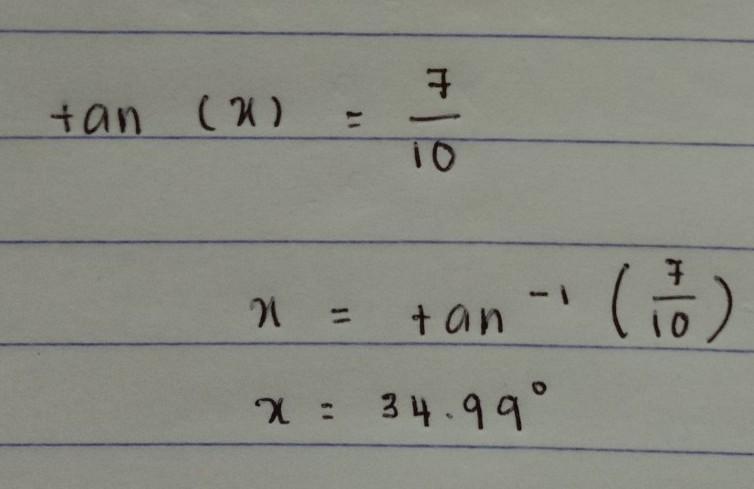 tan (x) = 7/10
x = tan⁻¹ (7/10)
x = 34.99°